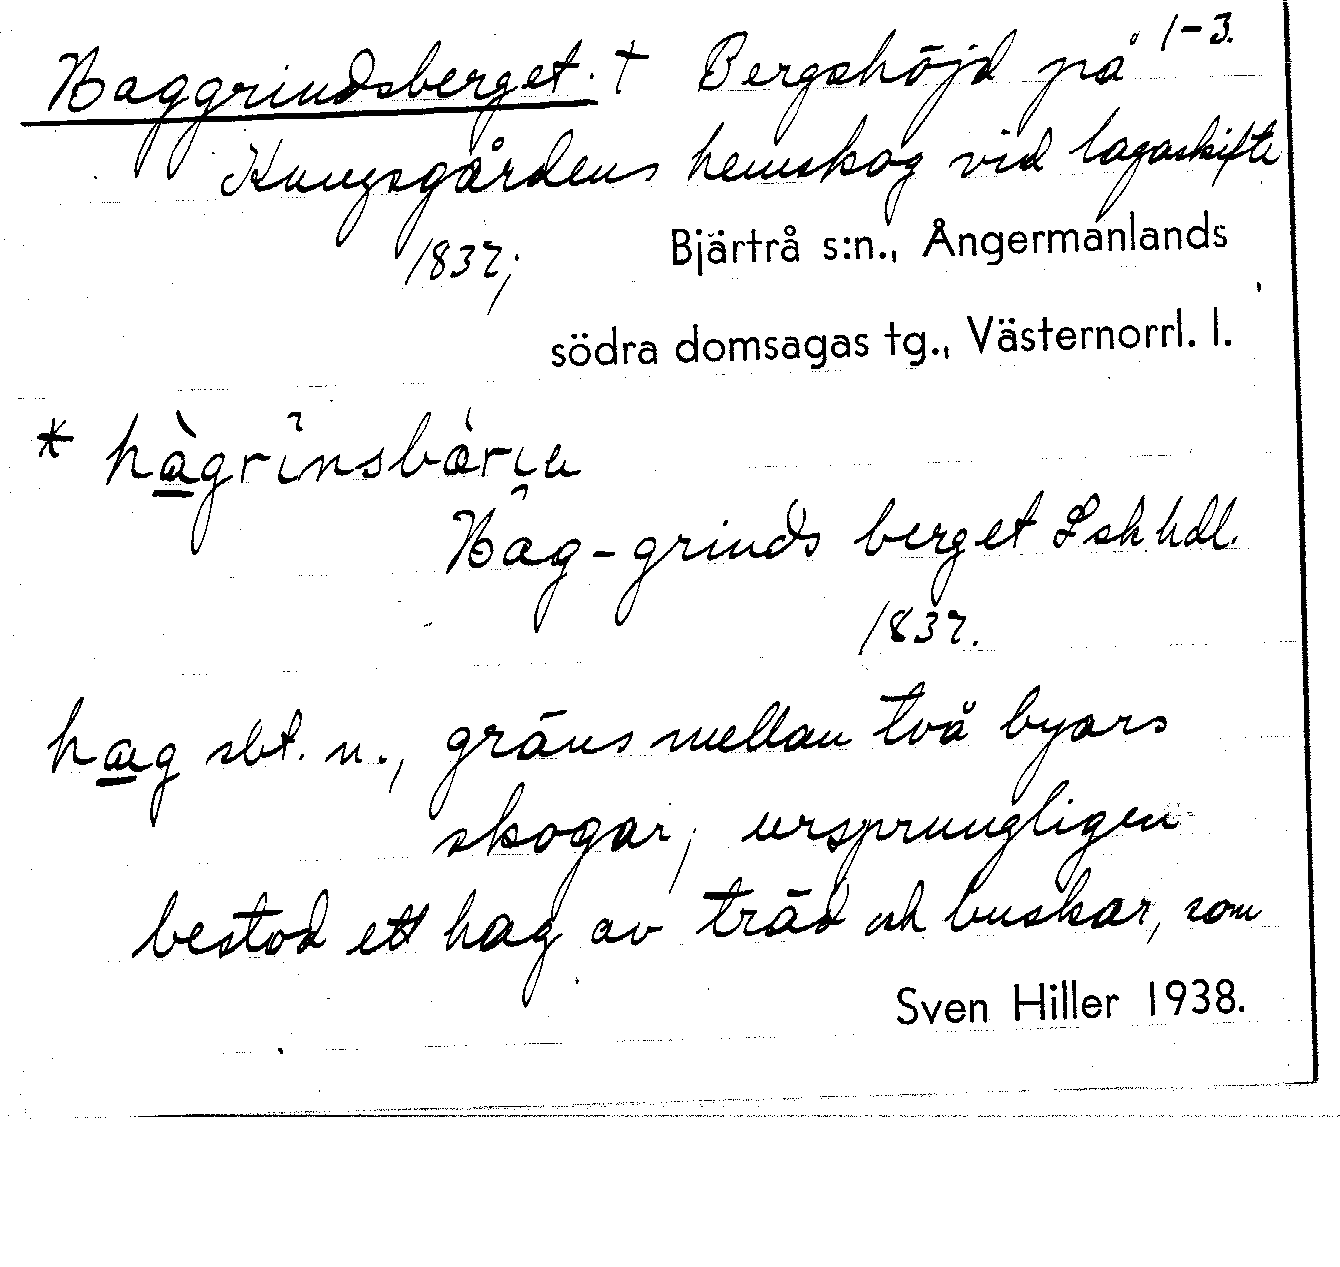 Haggrindsberget. † Bergshöjd på 1-3.
Kungsgårdens hemskog vid lagaskifte
1837;
Bjärtrå s:n., Ångermanlands
södra domsagas tg., Västernorrl. l.
* hàgrînsbärıa
Hag-grinds berget Lskhdl.
1837.
hag sbt. n., gräns mellan två byars
skogar; ursprungligen
bestod ett hag av träd och buskar, som
Sven Hiller 1938.